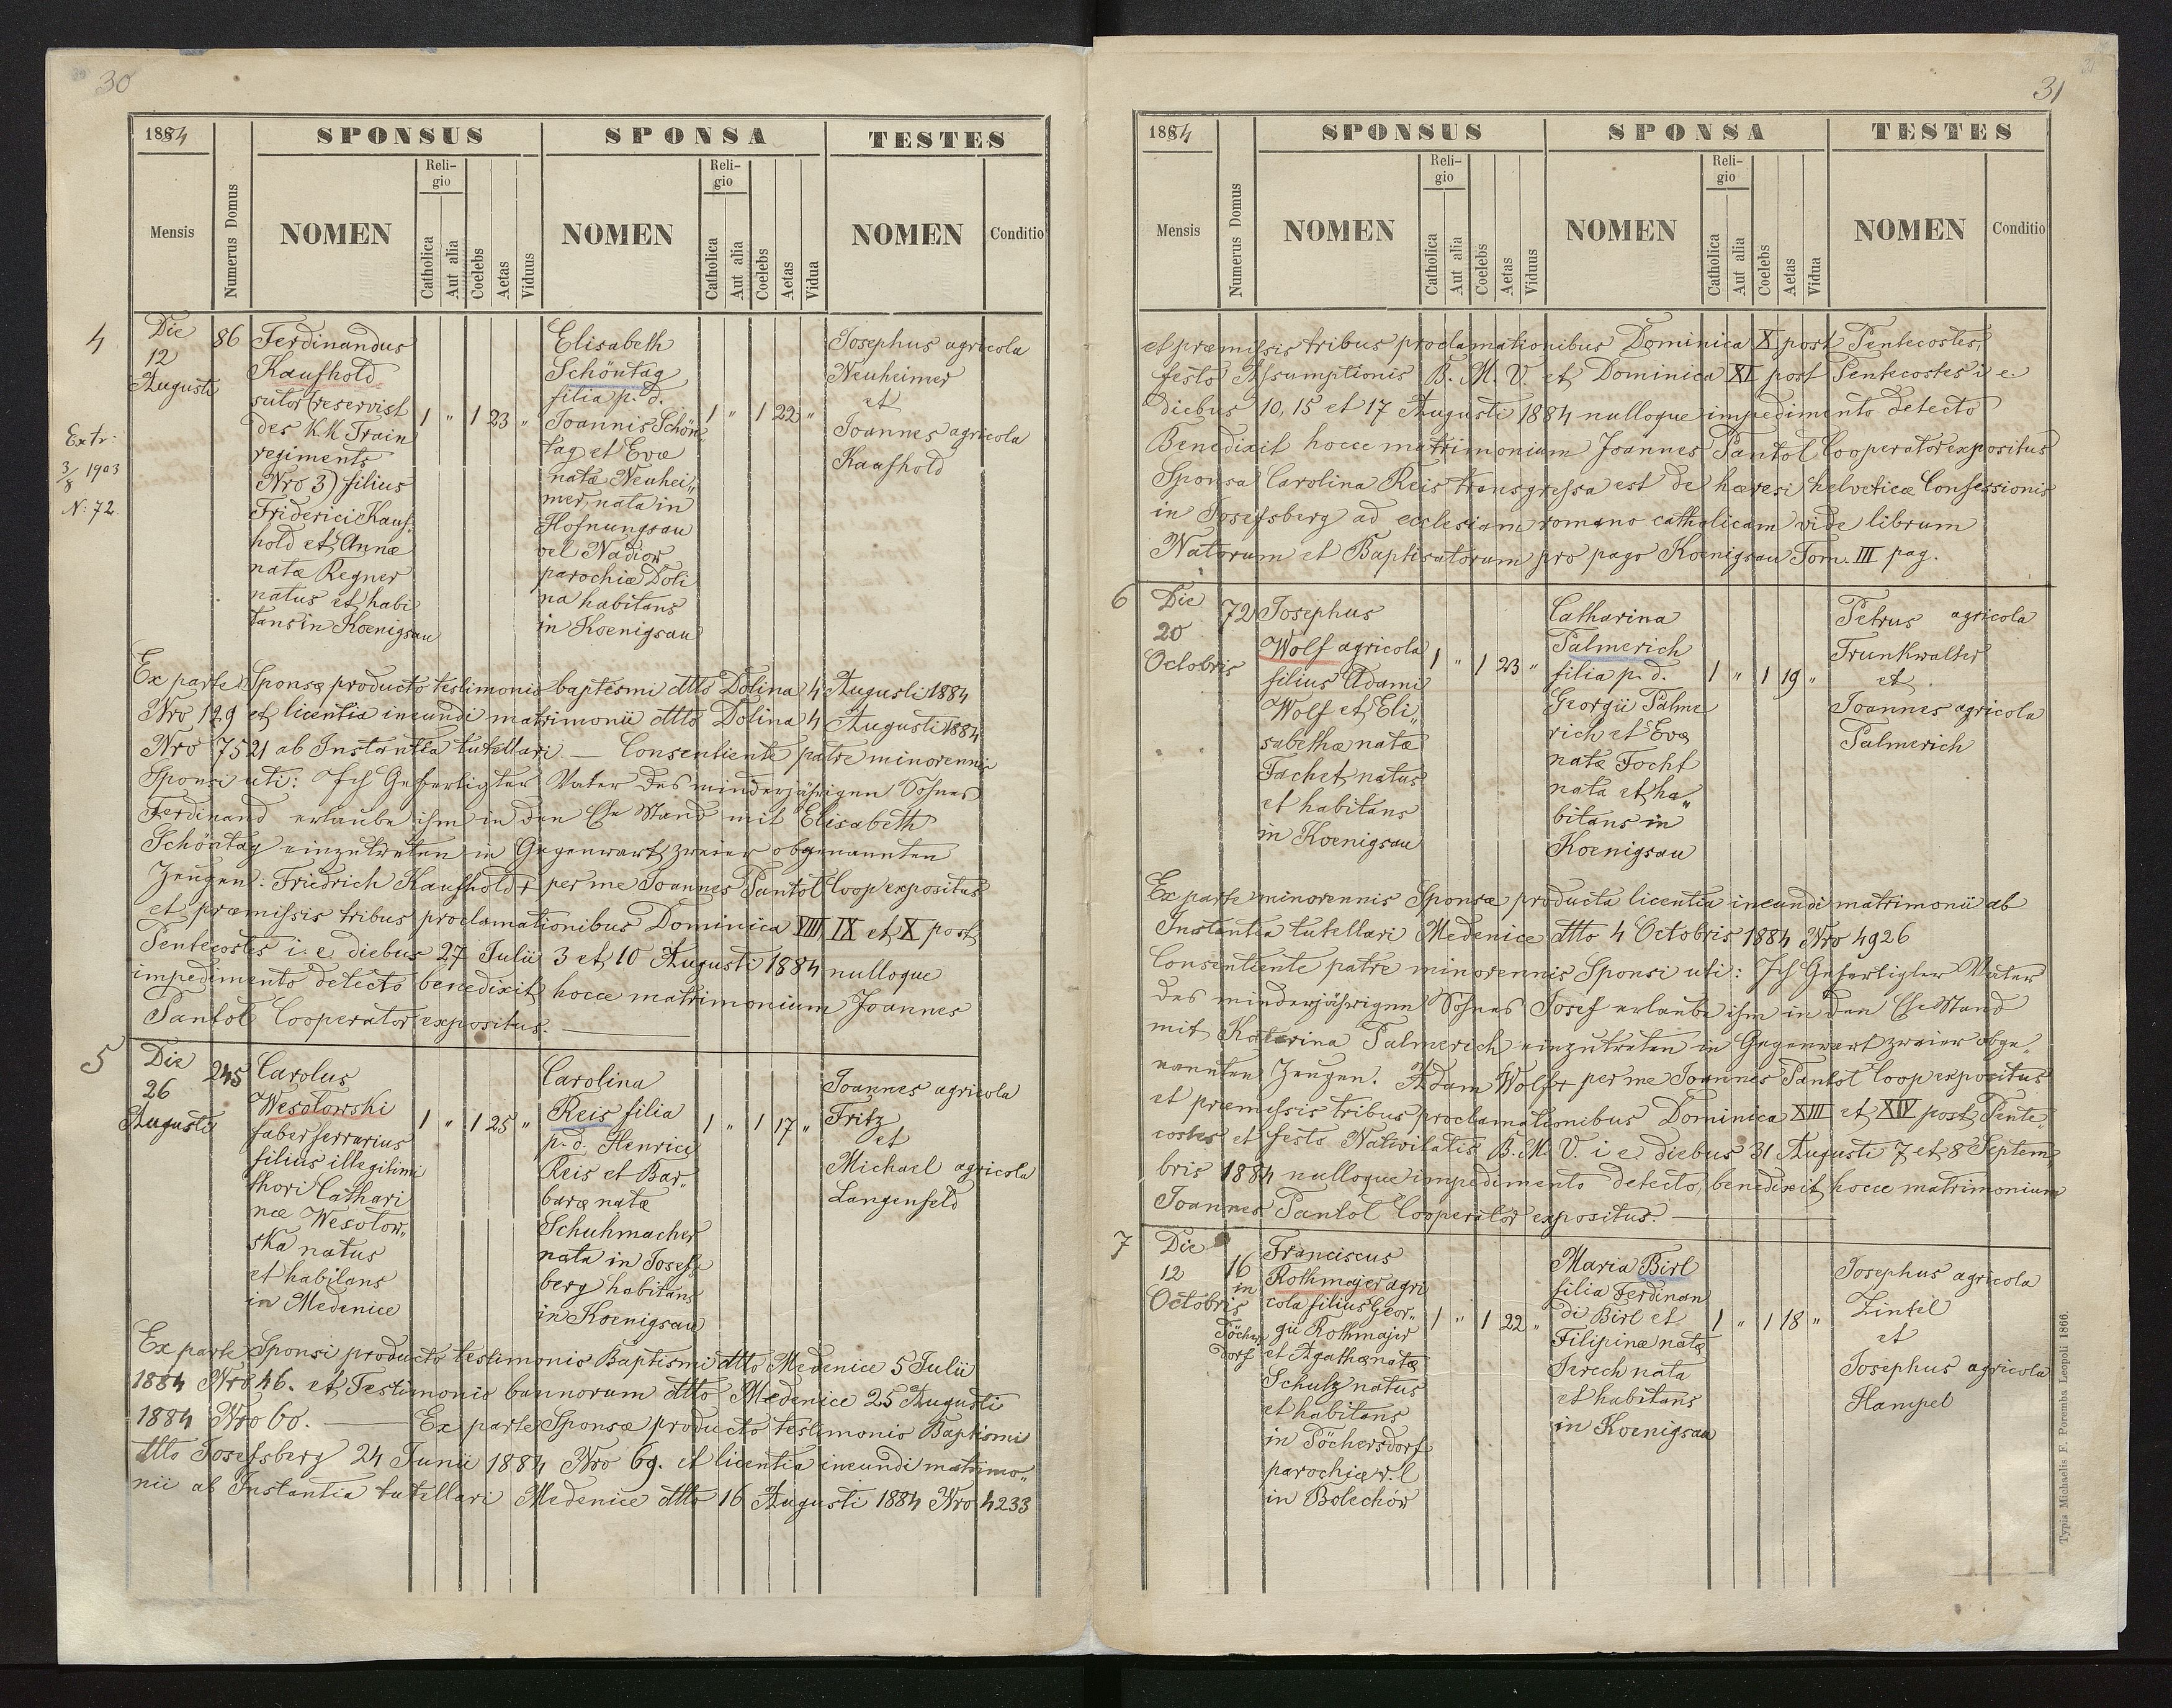 30
1884
SPONSUS
SPONSA
TESTES
Mensis
Numerus Domus
NOMEN
Reli-
gio
Catholica
Aut alia
Coelebs
Aetas
Viduus
NOMEN
Reli-
gio
Catholica
Aut alia
Coelebs
Aetas
Vidua
NOMEN
Conditio
4
Extr:
3/8 1903
N: 72.
Die
12
Augusti
86
Ferdinandus
Kaufhold
sutor (reservist
des KK Train
regiments
Nro 3) filius
Friderici Kauf-
hold et Annæ
natæ Regner
natus et habi
tans in Koenigsau
1 " 1 23 "
Elisabeth
Schöntag
filia p. d.
Joannis Schön
tag et Evæ
natæ Neuhei„
mer nata in
Hofnungsau
vel Nadiow
parochiæ Doli
na habitans
in Koenigsau
1 " 1 22 "
Josephus agricola
Neuheimer
et
Joannes agricola
Kaufhold
Ex parte Sponsæ producto testimonio baptismi dtto Dolina 4 Augusti 1884
Nro 129 et licentia ineundi matrimonii dtto Dolina 4 Augusti 1884
Nro 7521 ab Instantia tutellari — Consentiente patre minorennis
Sponsi uti: Ich Gefertigter Vater des minderjährigen Sohnes
Ferdinand erlaube ihm in den Ehe Stand mit Elisabeth
Schöntag einzutreten in Gegenwart zweier obgenannten
Zeugen. Friedrich Kaufhold + per me Joannes Pantoł Coop expositus
et præmissis tribus proclamationibus Dominica VIII IX et X post
Pentecostes i. e diebus 27 Julii 3 et 10 Augusti 1884 nulloque
impedimento detecto benedixit hocce matrimonium Joannes
Pantoł Cooperator expositus.
5
Die
26
Augusti
245
Carolus
Wesołowski
faber ferrarius
filius illegitimi
thori Cathari
næ Wesołow„
ska natus
et habitans
in Medenice
1 " 1 25 "
Carolina
Reis filia
p. d. Henrici
Reis et Bar„
baræ natæ
Schuhmacher
nata in Josefs
berg habitans
in Koenigsau
1 " 1 17 "
Joannes agricola
Fritz
et
Michael agricola
Langenfeld
Ex parte Sponsi producto testimonio Baptismi dtto Medenice 5 Julii
1884 Nro 46. et Testimonio bannorum dtto Medenice 25 Augusti
1884 Nro 60. — Ex parte Sponsæ producto testimonio Baptismi
dtto Josefsberg 24 Junii 1884 Nro 69. et licentia ineundi matrimo„
nii ab Instantia tutellari Medenice dtto 16 Augusti 1884 Nro 4233
31
1884
SPONSUS
SPONSA
TESTES
Mensis
Numerus Domus
NOMEN
Reli-
gio
Catholica
Aut alia
Coelebs
Aetas
Viduus
NOMEN
Reli-
gio
Catholica
Aut alia
Coelebs
Aetas
Vidua
NOMEN
Conditio
et præmissis tribus proclamationibus Dominica X post Pentecostes,
festo Assumptionis B. M. V. et Dominica XI post Pentecostes i e.
diebus 10, 15 et 17 Augusti 1884 nulloque impedimento detecto
Benedixit hocce matrimonium Joannes Pantoł Cooperator expositus
Sponsa Carolina Reis transgressa est de hæresi helveticæ Confessionis
in Josefsberg ad ecclesiam romano catholicam vide librum
Natorum et Baptisatorum pro pago Koenigsau Tom. III pag.
6
Die
20
Octobris
72
Josephus
Wolf agricola
filius Adami
Wolf et Eli„
sabethæ natæ
Fachet natus
et habitans
in Koenigsau
1 " 1 23 "
Catharina
Palmerich
filia p. d.
Georgii Palme
rich et Evæ
natæ Focht
nata et ha„
bitans in
Koenigsau
1 " 1 19 "
Petrus agricola
Trunkwalter
et
Joannes agricola
Palmerich
Ex parte minorennis Sponsæ producta licentia ineundi matrimonii ab
Instantia tutellari Medenice dtto 4 Octobris 1884 Nro 4926
Consentiente patre minorennis Sponsi uti: Ich Gefertigter Vater
des minderjährigen Sohnes Josef erlaube ihm in den Ehe Stand
mit Katarina Palmerich einzutreten in Gegenwart zweier obge„
nannten Zeugen. Adam Wolf + per me Joannes Pantoł Coop expositus
et præmissis tribus proclamationibus Dominica XIII et XIV post Pente„
costes et festo Nativitatis B. M. V. i e diebus 31 Augusti 7 et 8 Septem„
bris 1884 nulloque impedimento detecto, benedixit hocce matrimonium
Joannes Pantoł Cooperator expositus.
7
Die
12
Octobris
16
in
Pöchers
dorf
Franciscus
Rothmajer agri
cola filius Geor„
gii Rothmajer
et Agathæ natæ
Schulz natus
et habitans
in Pöchersdorf
parochiæ r. l
in Bolechów
1 " 1 22 "
Maria Birl
filia Ferdinan
di Birl et
Filipinæ natæ
Jerech nata
et habitans
in Koenigsau
1 " 1 18 "
Josephus agricola
Zintel
et
Josephus agricola
Hampel
Typis Michaelis F. Poremba Leopoli 1866.